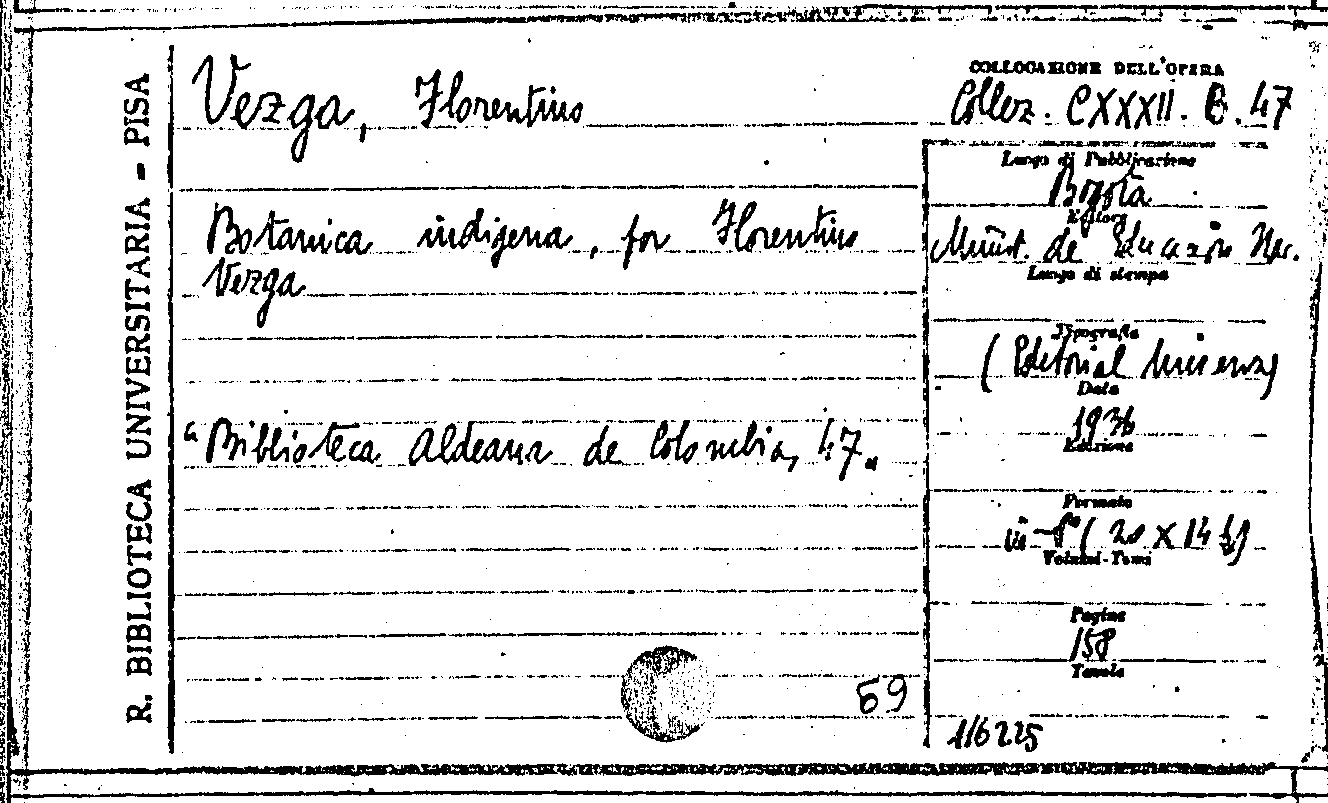 R. BIBLIOTECA UNIVERSITARIA - PISA
Vezga, Florentino
Botanica indigena, por Florentino
Vezga
"Biblioteca Aldeana de Colombia, 47"
59
COLLOCAZIONE DELL'OPERA
Collez. CXXXII. B. 47
Luogo di Pubblicazione
Bogotà
Editore
Minist. de Educazión Nac.
Luogo di stampa
Tipografia
(Editorial Minerva)
Data
1936
Edizione
Formato
in-8° (20 X 14
Volumi-Tomi
Pagine
158
Tavole
116225